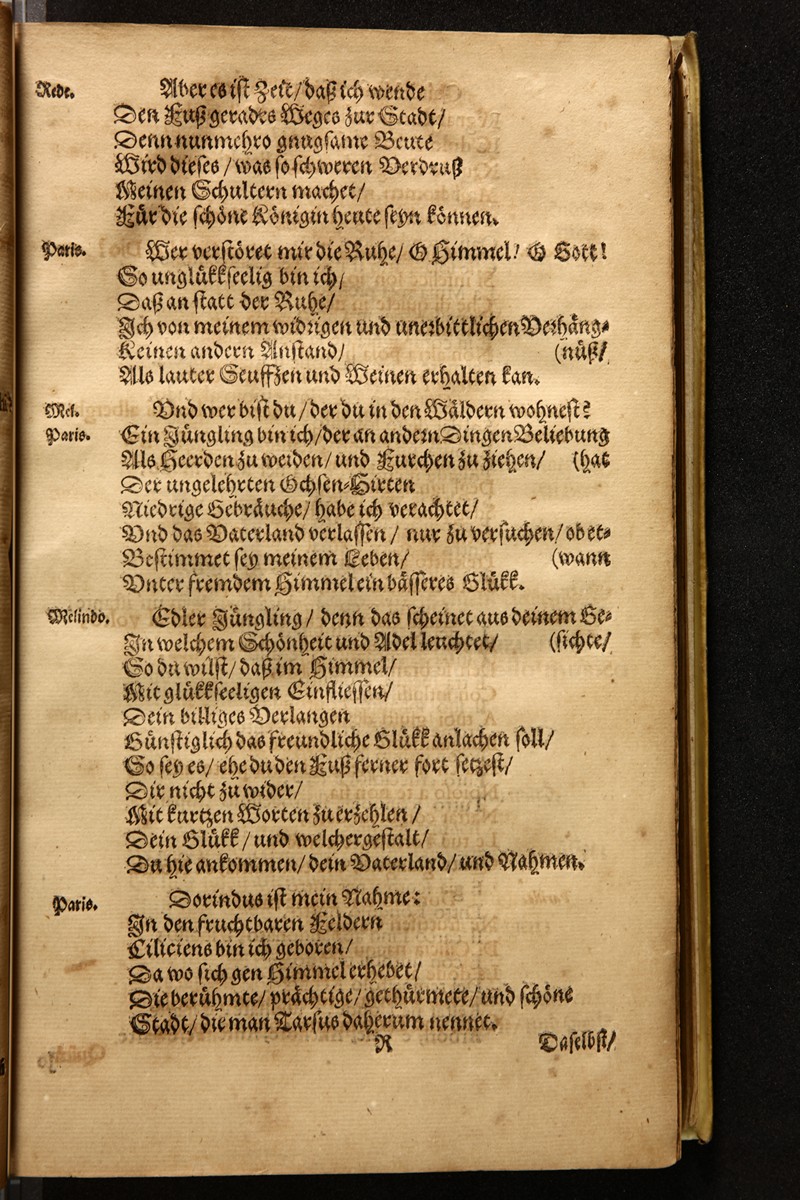 Rede. Aber es ist Zeit/ daß ich wende
Den Fuß gerades Weges zur Stadt/
Denn nunmehro gnugsame Beute
Wird dieses / was so schweren Verdruß
Meinen Schultern machet/
Für die schöne Königin heute seyn können.
Paris. Wer verstöret mir die Ruhe/ O Himmel! O Gott!
So unglükkseelig bin ich/
Daß an statt der Ruhe/
Ich von meinem widrigen und unerbittlichen Verhäng-
Keinen andern Anstand/ (nüß/
Als lauter Seuffzen und Weinen erhalten kan.
Mel. Vnd wer bist du / der du in den Wäldern wohnest?
Paris. Ein Jüngling bin ich/ der an andern Dingen Beliebung
Als Heerden zu weiden/ und Furchen zu ziehen/ (hat
Der ungelehrten Ochsen-Hirten
Niedrige Gebräuche/ habe ich verachtet/
Vnd das Vaterland verlassen / nur zu versuchen/ ob et-
Bestimmet sey meinem Leben/ (wann
Vnter frembdem Himmel ein bässeres Glükk.
Melindo. Edler Jüngling / denn das scheinet aus deinem Ge-
In welchem Schönheit und Adel leuchtet/ (sichte/
So du wilst/ daß im Himmel/
Mit glükkseeligen Einfliessen/
Dein billiges Verlangen
Günstiglich das freundliche Glükk anlachen soll/
So sey es/ ehe du den Fuß ferner fort setzest/
Dir nicht zu wider/
Mit kurtzen Worten zu erzehlen /
Dein Glükk / und welchergestalt/
Du hie ankommen/ dein Vaterland/ und Nahmen.
Paris. Dorindus ist mein Nahme:
In den fruchtbaren Feldern
Ciliciens bin ich geboren/
Da wo sich gen Himmel erhebet/
Die berühmte/ prächtige/ gethürmete/ und schöne
Stadt/ die man Tarsus daherum nennet.
R Daselbst/